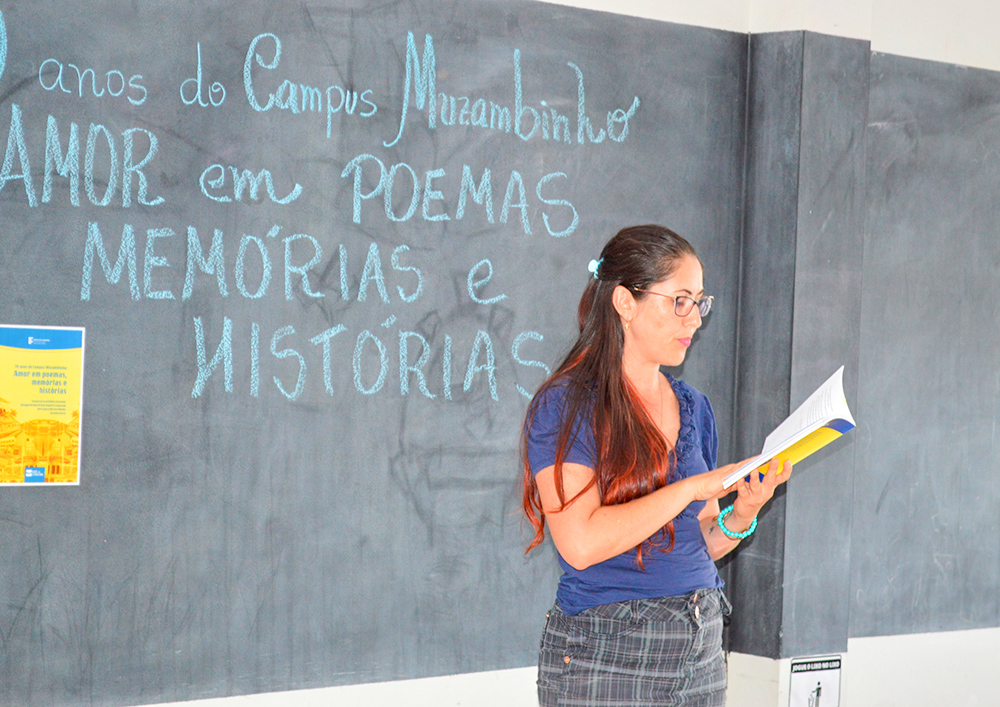 anos do Campus Muzambinho
AMOR em POEMAS
MEMÓRIAS e
HISTÓRIAS
Amor em poemas,
memórias e
histórias
JOGUE O LIXO NO LIXO